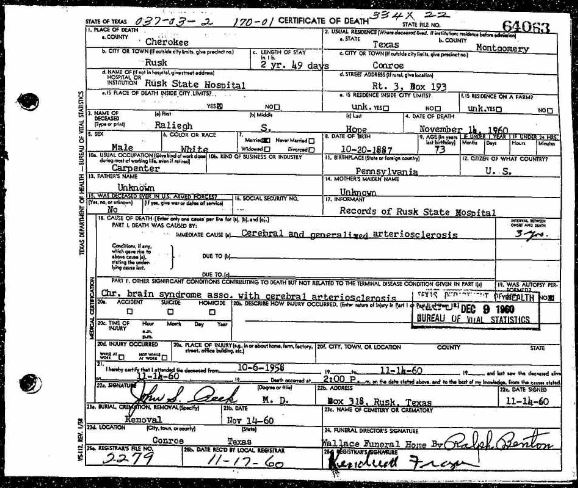 STATE OF TEXAS 037-03-2 170-01 CERTIFICATE OF DEATH 334X 22 64083
1. PLACE OF DEATH
a. COUNTY Cherokee
2. USUAL RESIDENCE (Where deceased lived. If institution: residence before admission)
a. STATE Texas b. COUNTY Montgomery
b. CITY OR TOWN (If outside city limits, give precinct no.) Rusk
c. LENGTH OF STAY in 1 b. 2 yr. 49 days
c. CITY OR TOWN (If outside city limits, give precinct no.) Conroe
d. NAME OF (If not in hospital, give street address) HOSPITAL OR INSTITUTION Rusk State Hospital
d. STREET ADDRESS (If rural, give location) Rt. 3, Box 193
e. IS PLACE OF DEATH INSIDE CITY LIMITS? YES NO
e. IS RESIDENCE INSIDE CITY LIMITS? unk. YES NO
f. IS RESIDENCE ON A FARM? unk. YES NO
3. NAME OF DECEASED (Type or print)
(a) First Raliegh (b) Middle S. (c) Last Hope
4. DATE OF DEATH November 14, 1960
5. SEX Male
6. COLOR OR RACE White
7. Married Never Married Widowed Divorced
8. DATE OF BIRTH 10-20-1887
9. AGE (In years last birthday) 73
IF UNDER 1 YEAR Months Days
IF UNDER 24 HRS. Hours Minutes
10a. USUAL OCCUPATION (Give kind of work done during most of working life, even if retired) Carpenter
10b. KIND OF BUSINESS OR INDUSTRY
11. BIRTHPLACE (State or foreign country) Pennsylvania
12. CITIZEN OF WHAT COUNTRY? U. S.
13. FATHER'S NAME Unknown
14. MOTHER'S MAIDEN NAME Unknown
15. WAS DECEASED EVER IN U.S. ARMED FORCES? (Yes, no, or unknown) (If yes, give war or dates of service) No
16. SOCIAL SECURITY NO.
17. INFORMANT Records of Rusk State Hospital
18. CAUSE OF DEATH (Enter only one cause per line for (a), (b), and (c).)
PART I. DEATH WAS CAUSED BY:
IMMEDIATE CAUSE (a) Cerebral and generalized arteriosclerosis
INTERVAL BETWEEN ONSET AND DEATH 3 yrs.
Conditions, if any, which gave rise to above cause (a), stating the underlying cause last.
DUE TO (b)
DUE TO (c)
PART II. OTHER SIGNIFICANT CONDITIONS CONTRIBUTING TO DEATH BUT NOT RELATED TO THE TERMINAL DISEASE CONDITION GIVEN IN PART I (a)
19. WAS AUTOPSY PERFORMED? NO
Chr. brain syndrome asso. with cerebral arteriosclerosis
20a. ACCIDENT SUICIDE HOMICIDE
20b. DESCRIBE HOW INJURY OCCURRED. (Enter nature of injury in Part I
HEALTH
DEC 9 1960
BUREAU OF VITAL STATISTICS
20c. TIME OF INJURY Hour Month Day Year
a.m.
p.m.
20d. INJURY OCCURRED WHILE AT WORK NOT WHILE AT WORK
20e. PLACE OF INJURY (e.g. in or about home, farm, factory, street, office building, etc.)
20f. CITY, TOWN, OR LOCATION COUNTY STATE
21. I hereby certify that I attended the deceased from 10-6-1958 19 to 11-14-60 19 and last saw the deceased alive
11-14-60 19 Death occurred at 2:00 P. m., on the date stated above, and to the best of my knowledge, from the causes stated.
22a. SIGNATURE (Degree or title) M. D.
22b. ADDRESS Box 318, Rusk, Texas
22c. DATE SIGNED 11-14-60
23a. BURIAL, CREMATION, REMOVAL (Specify) Removal
23b. DATE Nov 14-60
23c. NAME OF CEMETERY OR CREMATORY
23d. LOCATION (City) (State) Conroe Texas
24. FUNERAL DIRECTOR'S SIGNATURE Wallace Funeral Home By Ralph Benton
25a. REGISTRAR'S FILE NO. 2279
25b. DATE REC'D BY LOCAL REGISTRAR 11-17-60
25c. REGISTRAR'S SIGNATURE
TEXAS DEPARTMENT OF HEALTH — BUREAU OF VITAL STATISTICS
MEDICAL CERTIFICATION
VS-112, REV. 1/58